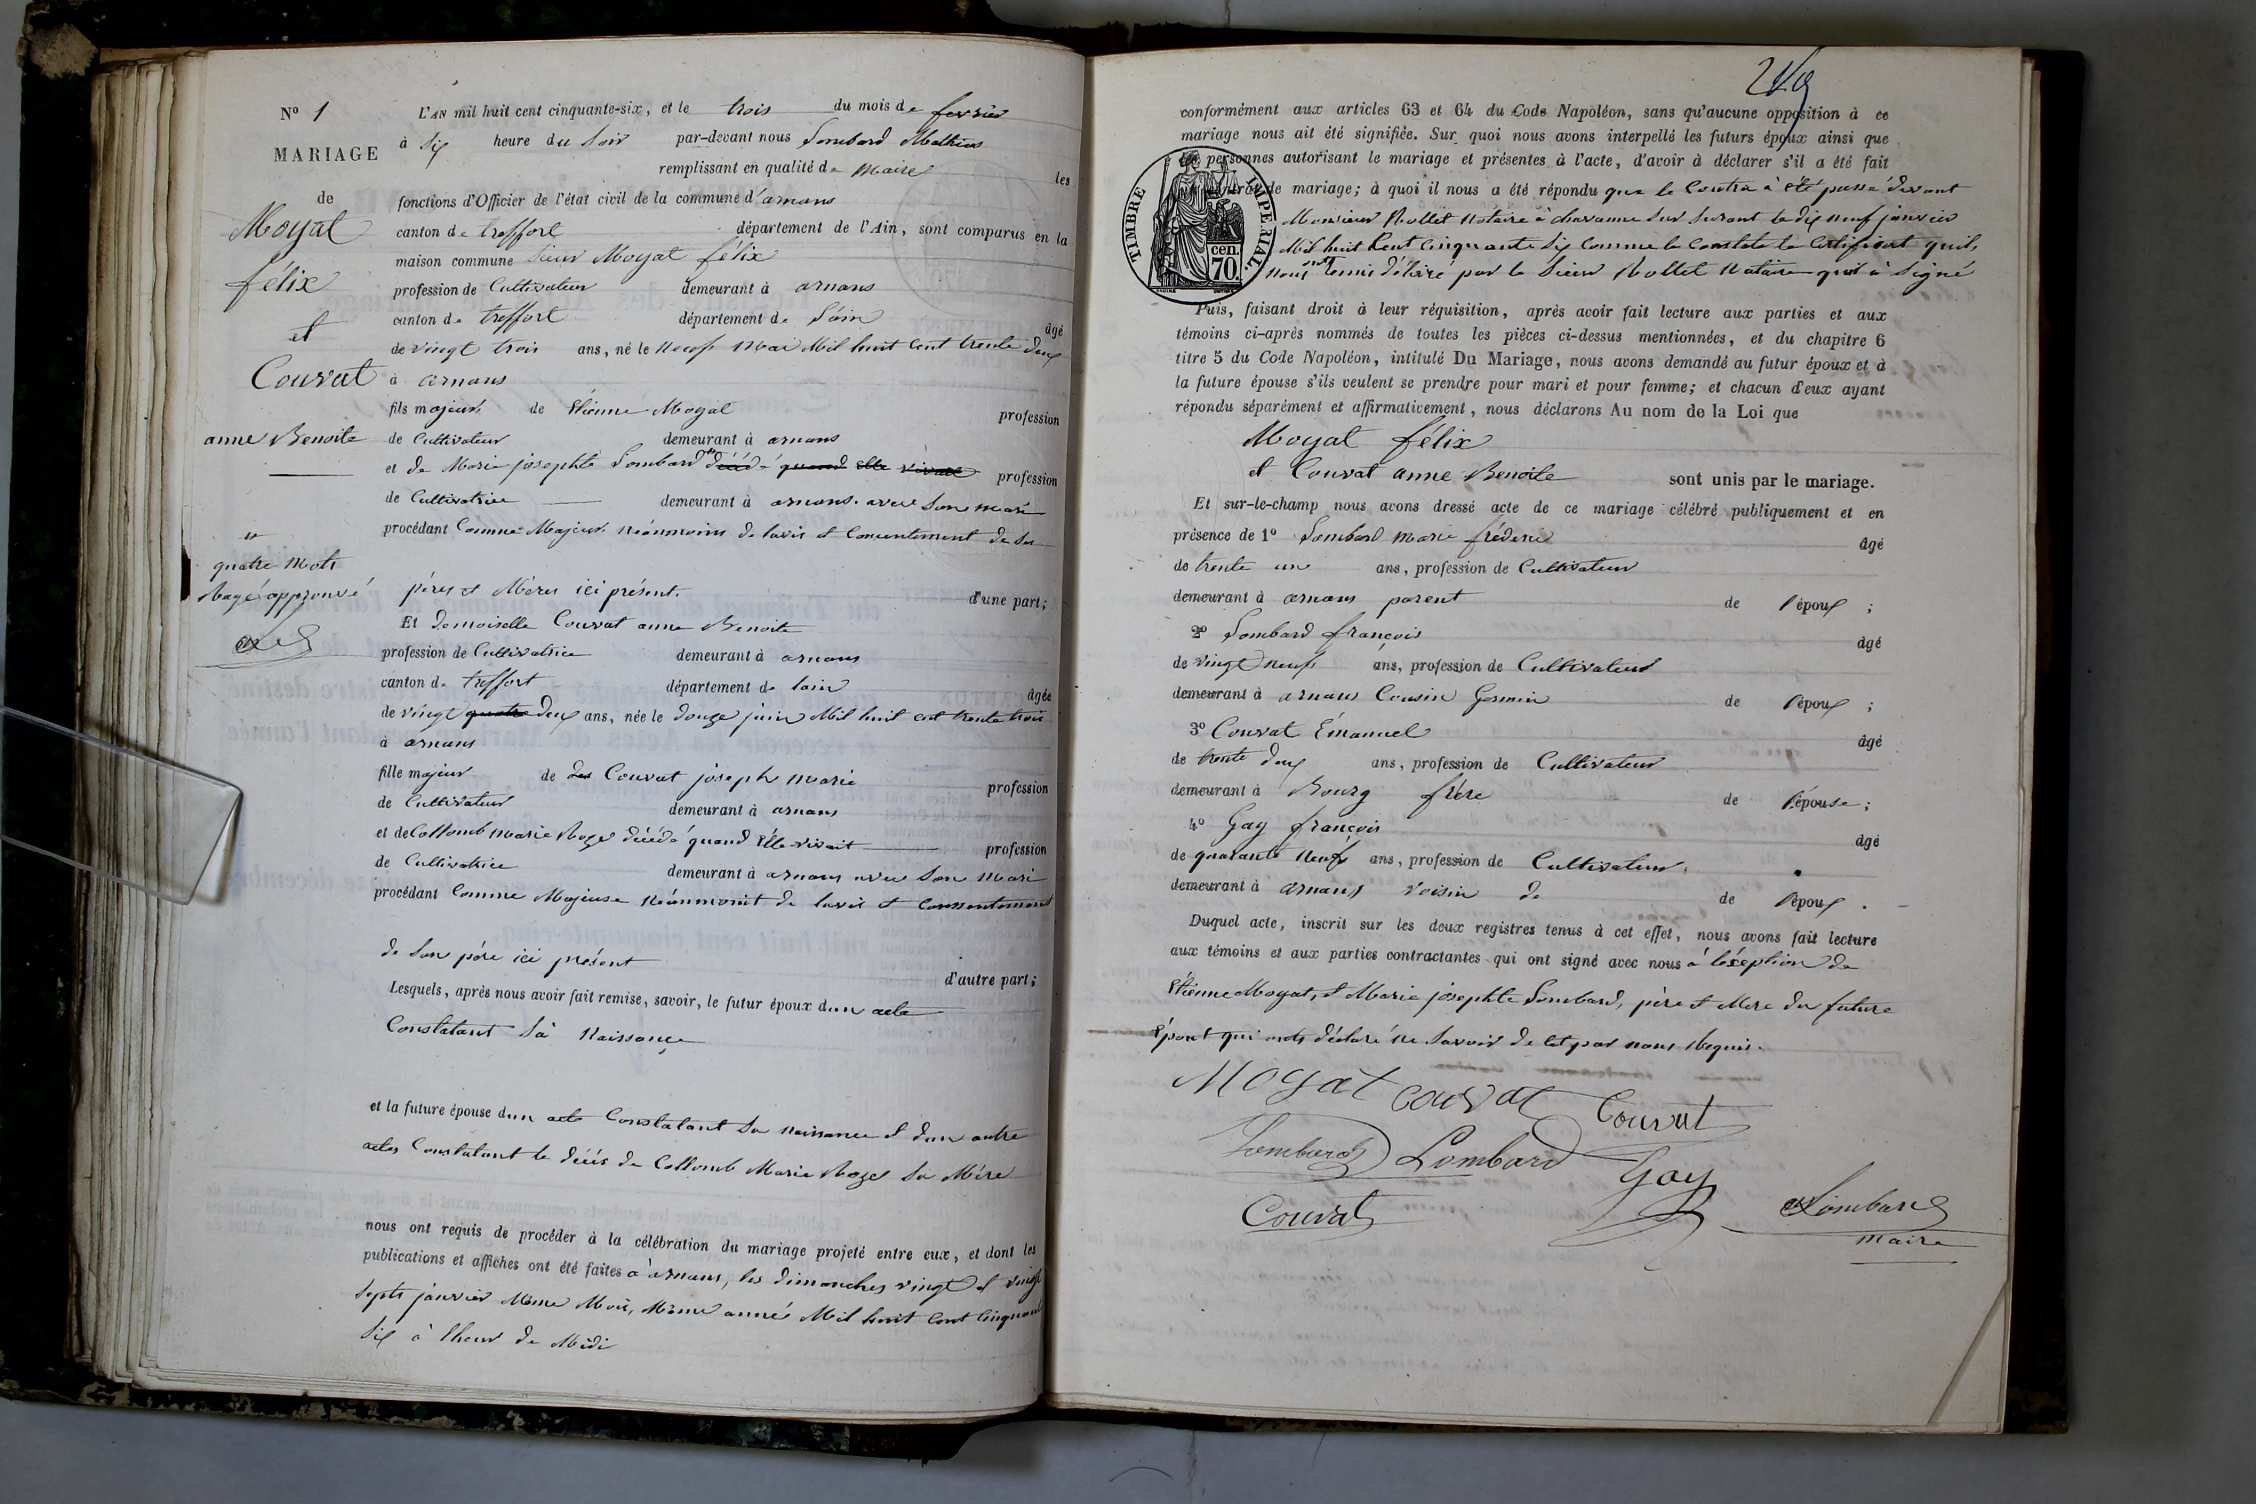 N° 1
MARIAGE
de
Moyat
félix
et
Couvat
anne Benoite
quatre mots
Rayé approuvé
L'AN mil huit cent cinquante-six, et le trois du mois de fevrier
à Six heure du Soir par-devant nous Lombard Mathieu
remplissant en qualité de Maire les
fonctions d'Officier de l'état civil de la commune d'arnans
canton de treffort département de l'Ain, sont comparus en la
maison commune Sieur Moyat félix
profession de Cultivateur demeurant à arnans
canton de treffort département de L'ain âgé
de vingt trois ans, né le Neuf Mai Mil huit Cent trente deux
à arnans
fils majeur de Etienne Moyat profession
de Cultivateur demeurant à arnans
et de Marie josephte Lombard décédé quand elle vivait profession
de Cultivatrice demeurant à arnans avec Son mari
procédant Comme Majeur Néanmoins de lavis et Concentement de Ses
pères et Mères ici présent. d'une part;
Et demoiselle Couvat anne Benoite
profession de Cultivatrice demeurant à arnans
canton de treffort département de lain âgée
de vingt quatre deux ans, née le douze juin Mil huit cent trente trois
à arnans
fille majeur de des Couvat joseph marie profession
de Cultivateur demeurant à arnans
et de Collomb marie Roze décédé quand Elle vivait profession
de Cultivatrice demeurant à arnans avec Son Mari
procédant Comme Majeuse Néanmoint de lavis et Conssentement
de Son père ici présent
d'autre part;
Lesquels, après nous avoir fait remise, savoir, le futur époux dun acte
Constatant Sà Naissançe
et la future épouse dun acte Constatant Sa naissance et dun autre
actes Constatant le décés de Collomb Marie Roze Sa Mére
nous ont requis de procéder à la célébration du mariage projeté entre eux, et dont les
publications et affiches ont été faites à arnans, les dimanches vingt et vingt
Septs janvier Même Mois, Même année Mil huit Cent Cinquante
Six à l'heur de Midi
conformément aux articles 63 et 64 du Code Napoléon, sans qu'aucune opposition à ce
mariage nous ait été signifiée. Sur quoi nous avons interpellé les futurs époux ainsi que
les personnes autorisant le mariage et présentes à l'acte, d'avoir à déclarer s'il a été fait
de mariage; à quoi il nous a été répondu que le Contra à été passé devant
Monsieur Rollet Notaire à chavanne Sur Surant le dix neuf janvier
Mil huit Cent Cinquante Six Comme le Constate le Certificat quils
Nous ont Remis délivré par le Sieur Rollet Notaire qui à Signé
TIMBRE IMPERIAL
70 cen.
Puis, faisant droit à leur réquisition, après avoir fait lecture aux parties et aux
témoins ci-après nommés de toutes les pièces ci-dessus mentionnées, et du chapitre 6
titre 5 du Code Napoléon, intitulé Du Mariage, nous avons demandé au futur époux et à
la future épouse s'ils veulent se prendre pour mari et pour femme; et chacun d'eux ayant
répondu séparément et affirmativement, nous déclarons Au nom de la Loi que
Moyat félix
et Couvat anne Benoite sont unis par le mariage.
Et sur-le-champ nous avons dressé acte de ce mariage célébré publiquement et en
présence de 1° Lombard Marie fréderic âgé
de trente un ans, profession de Cultivateur
demeurant à arnans parent de l'époux ;
2° Lombard françois âgé
de vingt neuf ans, profession de Cultivateur
demeurant à arnans Cousin Germin de l'époux ;
3° Couvat Émanuel âgé
de trente deux ans, profession de Cultivateur
demeurant à Bourg frére de l'épouse ;
4° Gay françois âgé
de quarante Neuf ans, profession de Cultivateur.
demeurant à arnans Voisin de de l'époux .
Duquel acte, inscrit sur les deux registres tenus à cet effet, nous avons fait lecture
aux témoins et aux parties contractantes qui ont signé avec nous à léxeption de
Etienne Moyat, et Marie josephte Lombard, père et Mere du future
épout qui onts déclaré ne Savoir de cet par nous Requis.
Moyat Couvat Couvat
Lombard Lombard Gay
Couvat Lombard
Maire